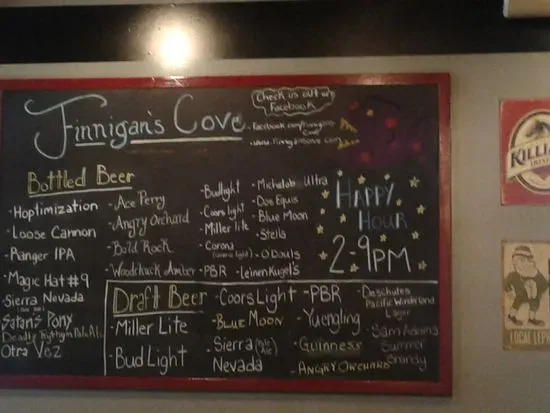 Finnigan's Cove
Check us out on
Facebook
- Facebook.com/Finnigans
Cove
- www.Finnigan'sCove.com
Bottled Beer
- Hoptimization
- Loose Cannon
- Ranger IPA
- Magic Hat #9
- Sierra Nevada
Satan's Pony
Deadly Rhythm Pale Ale
Otra Vez
- Ace Perry
- Angry Orchard
- Bold Rock
- Woodchuck Amber
- Budlight
- Coors light
- Miller lite
- Corona
- PBR
- Michelob Ultra
- Dos Equis
- Blue Moon
- Stella
- O'Douls
- Leinen Kugel's
Happy
Hour
2-9PM
Draft Beer
- Miller Lite
- Bud Light
- Coors Light
- Blue Moon
- Sierra (Pale Ale)
Nevada
- PBR
- Yuengling
- Guinness
- Angry Orchard
- Deschutes
Pacific Wonderland
Lager
- Sam Adams
Summer
KILLI
LOCAL LEP